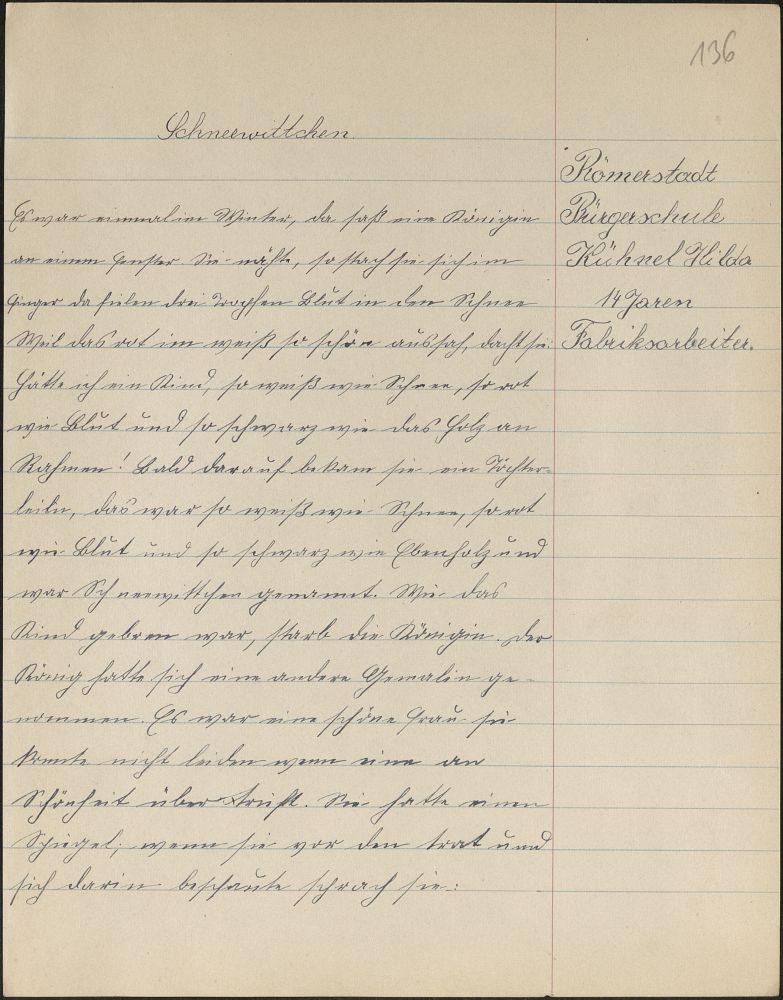 136
Schneewittchen.
Römerstadt
Bürgerschule
Kühnel Hilda
14 Jaren
Fabriksarbeiter.
Es war einmal im Winter, da saß eine Königin
an einem Fenster. Sie nähte, so stach sie sich im
Finger da fielen drei Tropfen Blut in den Schnee
Weil das rot im weiß so schön aussah, dacht sie:
Hätte ich ein Kind, so weiß wie Schnee, so rot
wie Blut und so schwarz wie das Holz an
Rahmen! Bald darauf bekam sie ein Töchter-
leiln, das war so weiß wie Schnee, so rot
wie Blut und so schwarz wie Ebenholz und
war Schneewittchen genannt. Wie das
Kind gebren war, starb die Königin. Der
König hatte sich eine andere Gemalin ge-
nommen. Es war eine schöne Frau sie
konnte nicht leiden wenn eine an
Schönheit über trifft. Sie hatte einen
Spiegel; wenn sie vor den trat und
sich darin beschaute sprach sie: